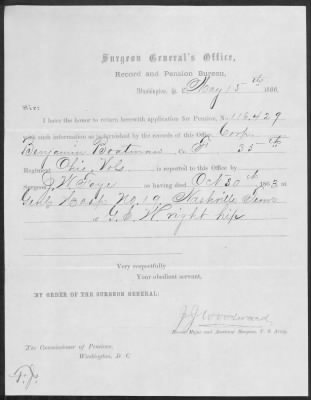 Surgeon General's Office,
Record and Pension Bureau,
Washington, D. C. May 15th 1866,
Sir:
I have the honor to return herewith application for Pension, No. 116.429
with such information as is furnished by the records of this Office. Corp.
Benjamin Boatman Co F 35th
Regiment Ohio Vols is reported to this Office by
Surgeon J W Foye as having died Oct 30th 1863 at
Genl Hosp No. 19 Nashville Tenn
G. S. W. right hip
Very respectfully
Your obedient servant,
BY ORDER OF THE SURGEON GENERAL:
J J Woodward
Brevet Major and Assistant Surgeon, U. S. Army.
The Commissioner of Pensions,
Washington, D. C.